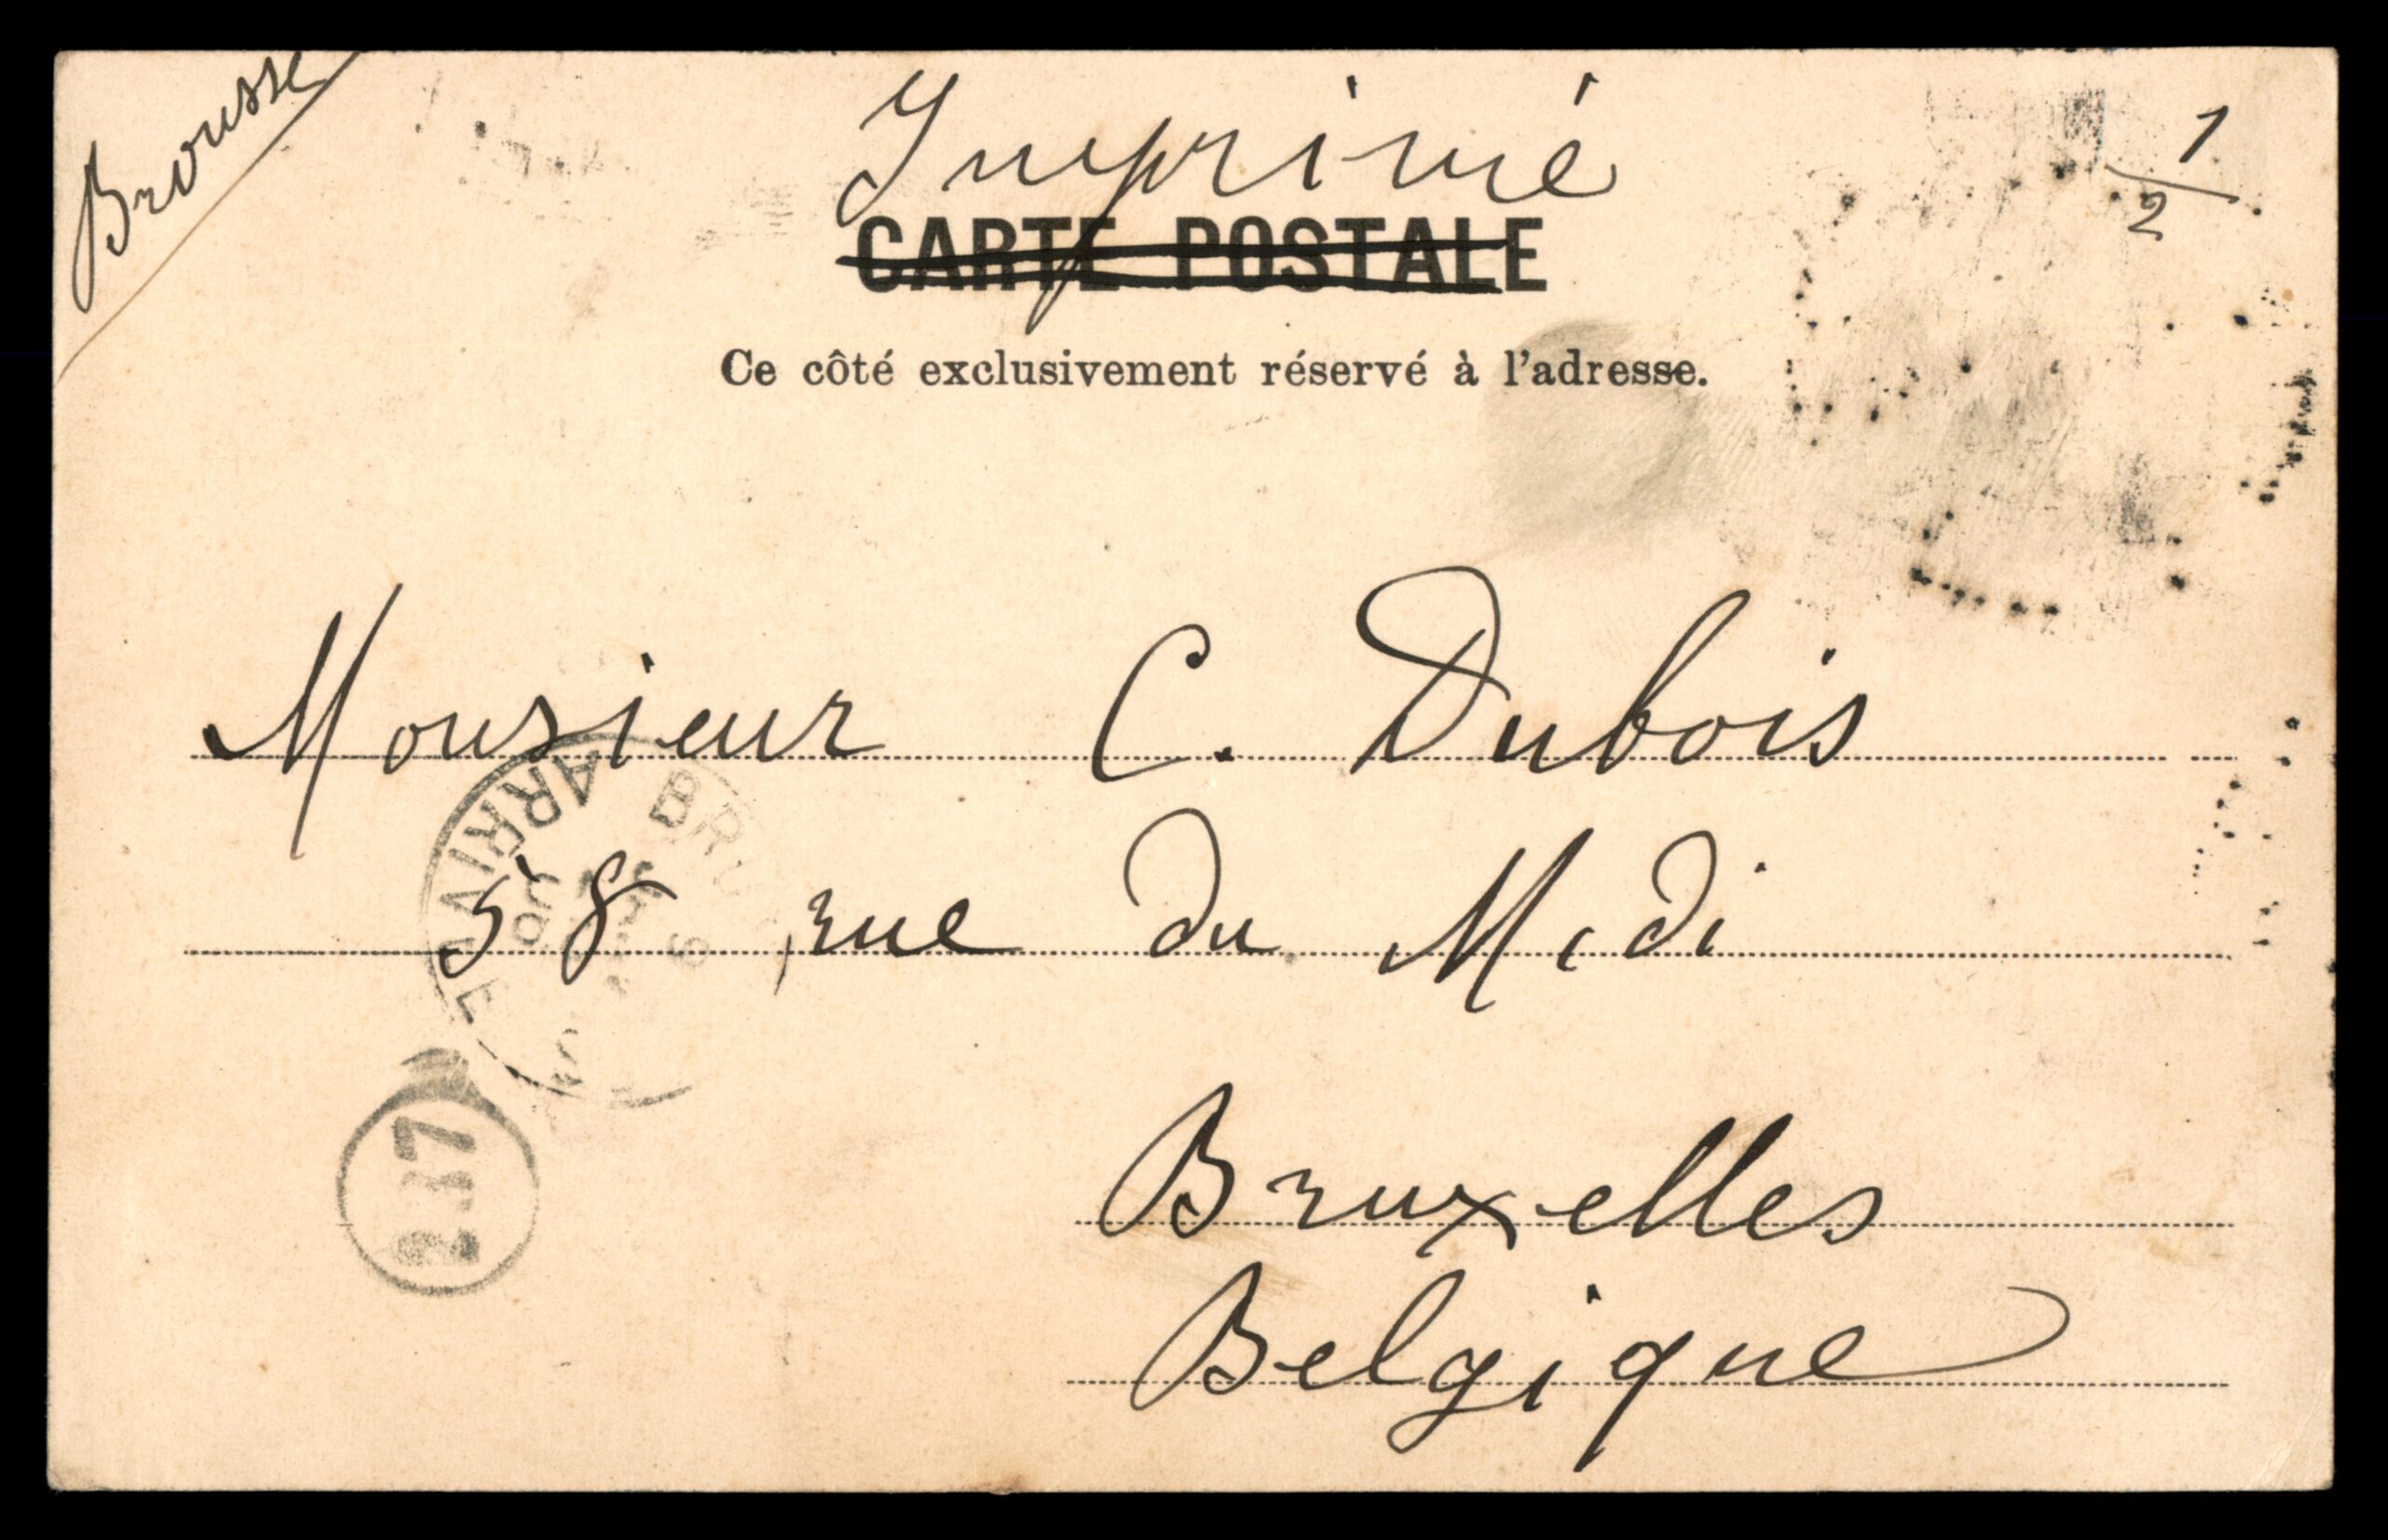 Brousse
Imprimé
1/2
CARTE POSTALE
Ce côté exclusivement réservé à l'adresse.
Monsieur C. Dubois
58, rue du Midi
Bruxelles
Belgique
ARRIV